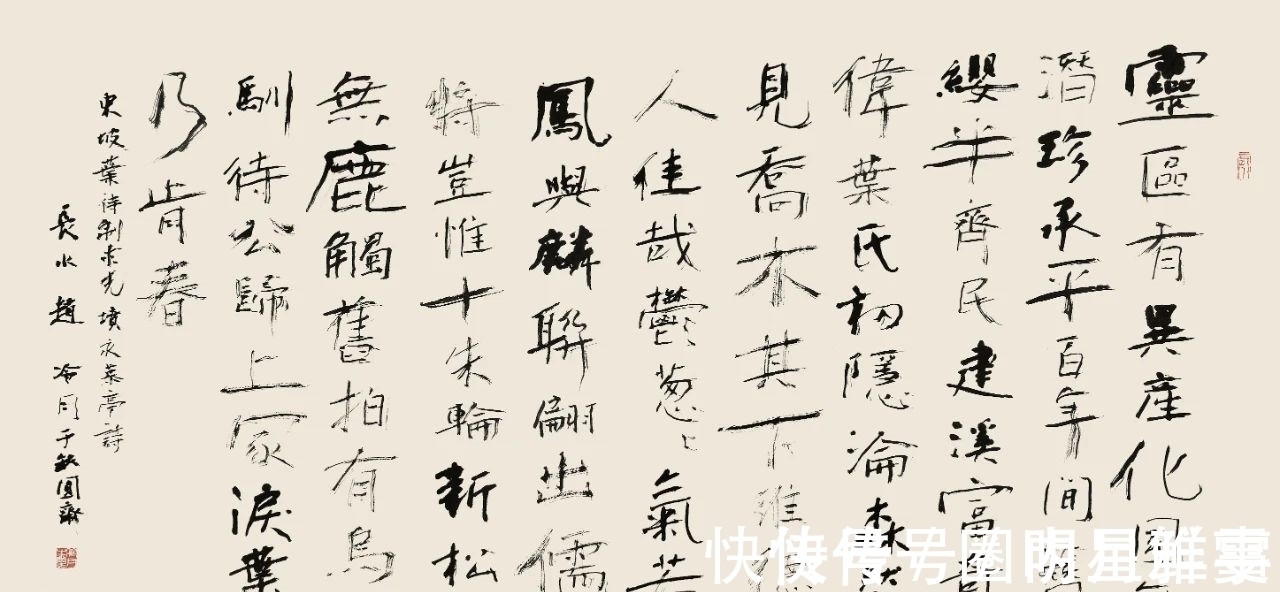 靈區有異產化
潛珍承平百年間
纓半齊民建溪富
偉葉氏初隱淪森然
見喬木其下維德
人佳哉鬱葱〻氣若
鳳與麟聯翩出儒
將豈惟十朱輪新松
無鹿觸舊柏有烏
馴待公歸上冢淚葉
乃肯春
東坡葉待制求先墳永慕亭詩
長水趙冷月于缺圓齋